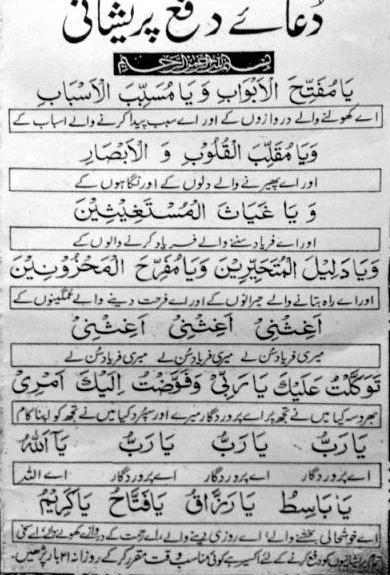 دُعائے دفع پریشانی
بسم اللہ الرحمن الرحیم
يَا مُفَتِّحَ الْاَبْوَابِ وَ يَا مُسَبِّبَ الْاَسْبَابِ
اے کھولنے والے دروازوں کے اور اے سبب پیدا کرنے والے اسباب کے
وَيَا مُقَلِّبَ الْقُلُوْبِ وَ الْاَبْصَارِ
اور اے پھیرنے والے دلوں کے اور نگاہوں کے
وَ يَا غَيَاثَ الْمُسْتَغِيْثِيْنَ
اور اے فریاد سننے والے فریاد کرنے والوں کے
وَيَا دَلِيْلَ الْمُتَحَيِّرِيْنَ وَيَا مُفَرِّحَ الْمَحْزُوْنِيْنَ
اور اے راہ بتانے والے حیرانوں کے اور اے فرحت دینے والے غمگینوں کے
اَغِثْنِيْ اَغِثْنِيْ اَغِثْنِيْ
میری فریاد سُن لے میری فریاد سُن لے میری فریاد سُن لے
تَوَكَّلْتُ عَلَيْكَ يَا رَبِّيْ وَفَوَّضْتُ اِلَيْكَ اَمْرِيْ
بھروسہ کیا میں نے تجھ پر اے پروردگار میرے اور سپرد کیا میں نے تجھ کو اپنا کام
يَا رَبُّ يَا رَبُّ يَا رَبُّ يَآ اَللهُ
اے پروردگار اے پروردگار اے پروردگار اے اللہ
يَا بَاسِطُ يَا رَزَّاقُ يَا فَتَّاحُ يَا كَرِيْمُ
اے خوشحالی بخشنے والے، اے روزی دینے والے، اے رحمت کے دروازے کھولنے والے اے سخی
تمام پریشانیوں کو دفع کرنے کے لئے اکسیر ہے کوئی مناسب وقت مقرر کر کے روزانہ بار پڑھیں۔